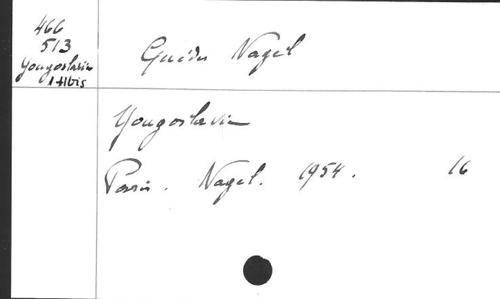 466
513
Yougoslavie
1 Hbis
Guides Nagel
Yougoslavie
Paris. Nagel. 1954. 16